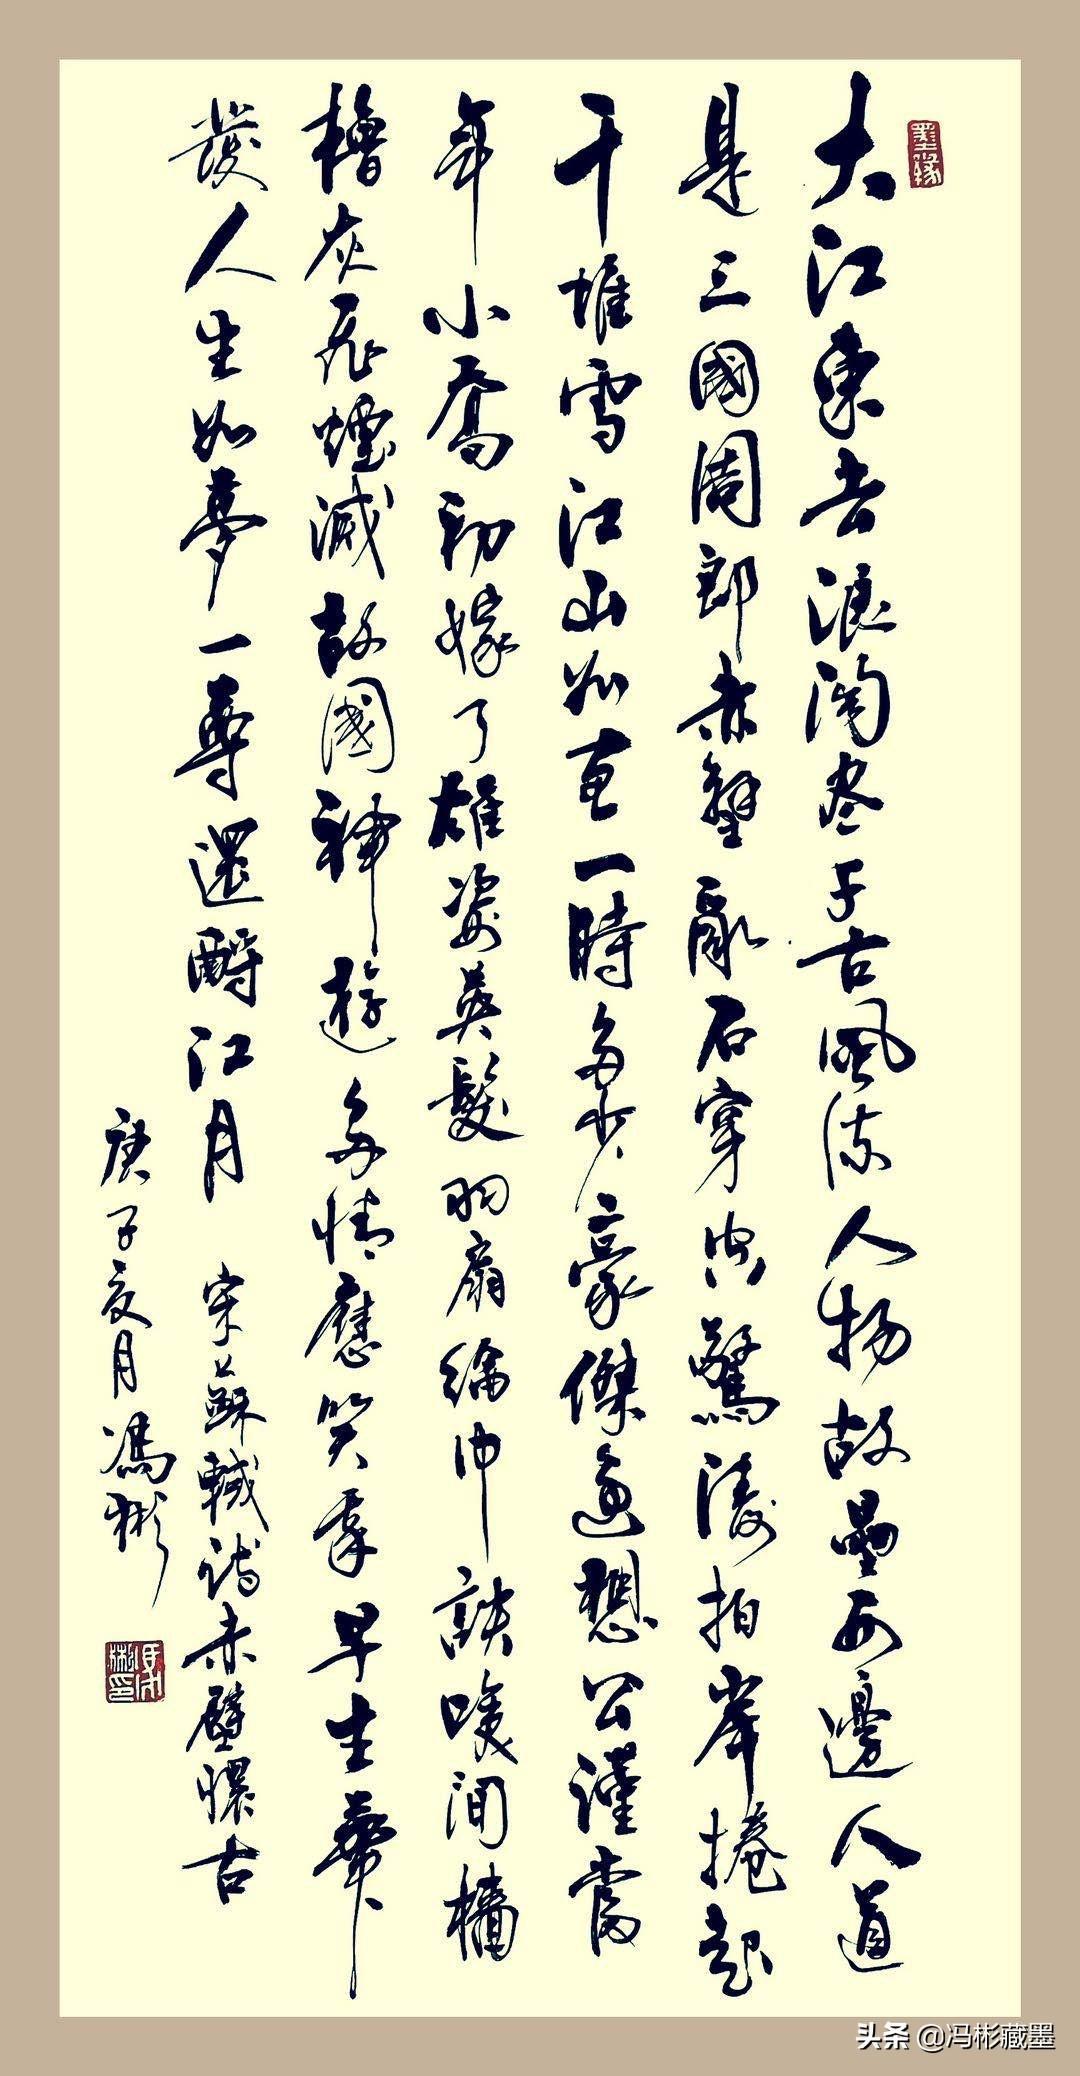 墨缘
大江東去浪淘尽千古風流人物故壘西邊人道
是三國周郎赤壁亂石穿空驚濤拍岸捲起
千堆雪江山如画一時多少豪傑遙想公瑾當
年小喬初嫁了雄姿英髮羽扇綸巾談咲間檣
櫓灰飛煙滅故國神遊多情應笑我早生華
發人生如夢一尊還酹江月 宋蘇軾詩赤壁懷古
庚子夏月馮彬
头条 @冯彬藏墨